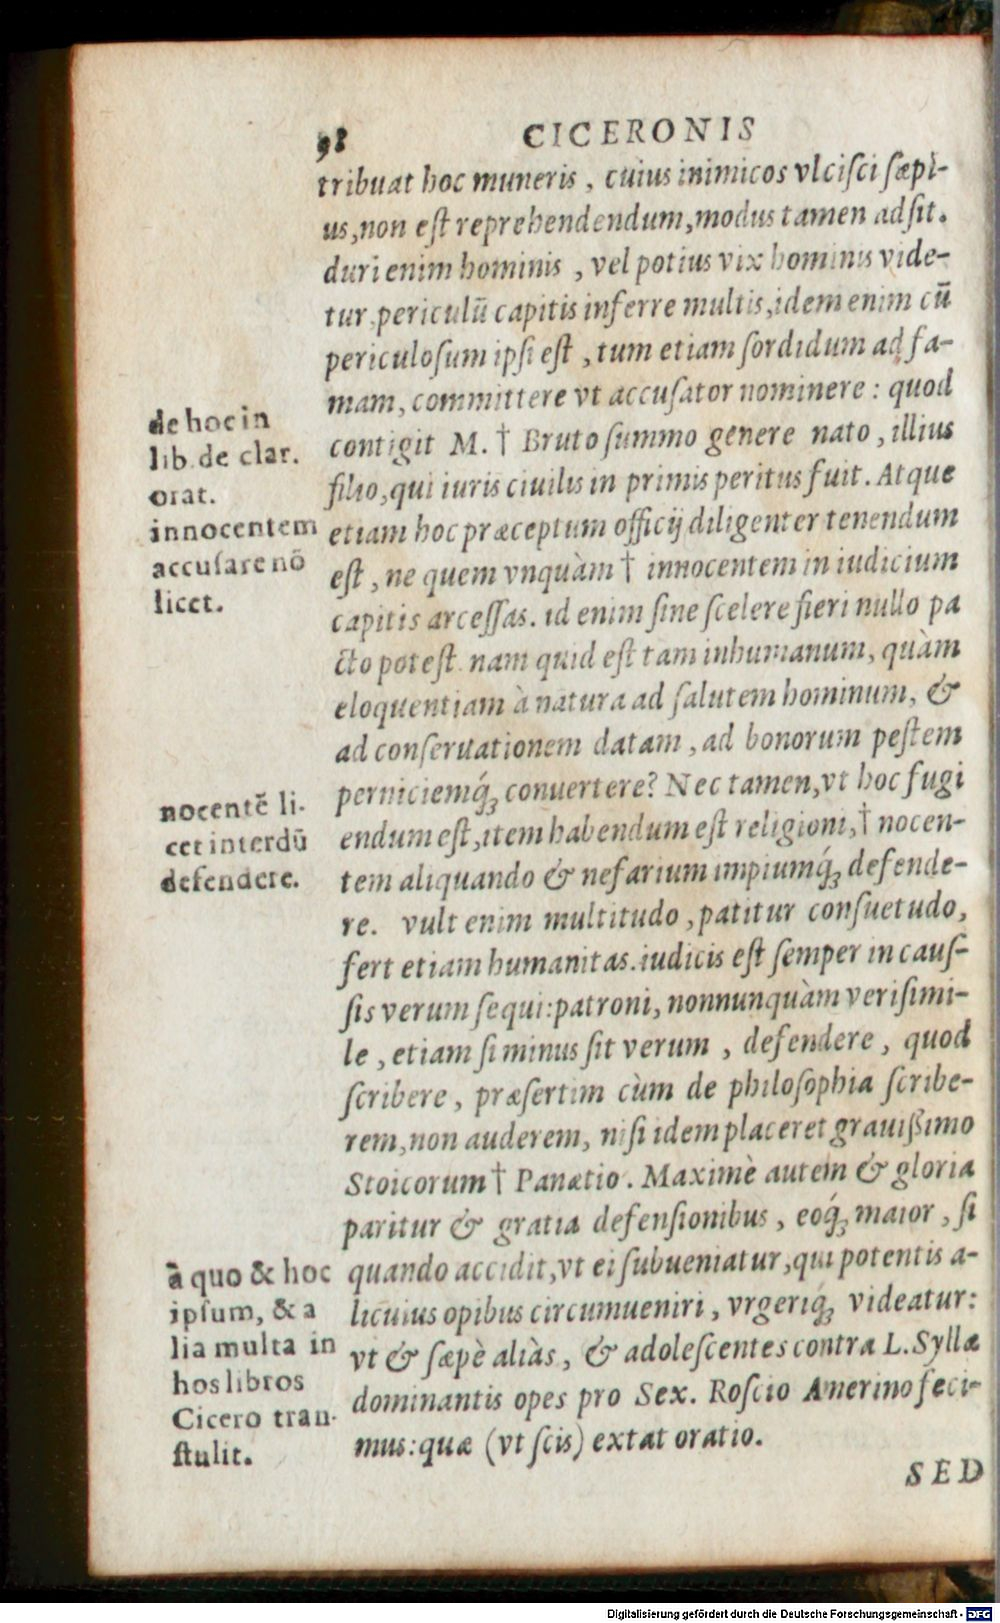 98 CICERONIS
tribuat hoc muneris, cuius inimicos vlcisci sæpi-
us, non est reprehendendum, modus tamen adsit.
duri enim hominis, vel potius vix hominis vide-
tur, periculū capitis inferre multis, idem enim cū
periculosum ipsi est, tum etiam sordidum ad fa-
mam, committere vt accusator nominere: quod
contigit M. † Bruto summo genere nato, illius
filio, qui iuris ciuilis in primis peritus fuit. Atque
etiam hoc præceptum officij diligenter tenendum
est, ne quem vnquàm † innocentem in iudicium
capitis arcessas. id enim sine scelere fieri nullo pa
cto potest. nam quid est tam inhumanum, quàm
eloquentiam à natura ad salutem hominum, &
ad conseruationem datam, ad bonorum pestem
perniciemq́ꝫ conuertere? Nec tamen, vt hoc fugi
endum est, item habendum est religioni, † nocen-
tem aliquando & nefarium impiumq́ꝫ defende-
re. vult enim multitudo, patitur consuetudo,
fert etiam humanitas. iudicis est semper in caus-
sis verum sequi: patroni, nonnunquàm verisimi-
le, etiam si minus sit verum, defendere, quod
scribere, præsertim cùm de philosophia scribe-
rem, non auderem, nisi idem placeret grauißimo
Stoicorum † Panætio. Maximè autem & gloria
paritur & gratia defensionibus, eoq́ꝫ maior, si
quando accidit, vt ei subueniatur, qui potentis a-
licuius opibus circumueniri, vrgeriq́ꝫ videatur:
vt & sæpè aliàs, & adolescentes contra L. Syllæ
dominantis opes pro Sex. Roscio Amerino feci-
mus: quæ (vt scis) extat oratio.
SED
de hoc in
lib. de clar.
orat.
innocentem
accusare nō
licet.
nocentē li-
cet interdū
defendere.
à quo & hoc
ipsum, & a
lia multa in
hos libros
Cicero tran-
stulit.
Digitalisierung gefördert durch die Deutsche Forschungsgemeinschaft - DFG